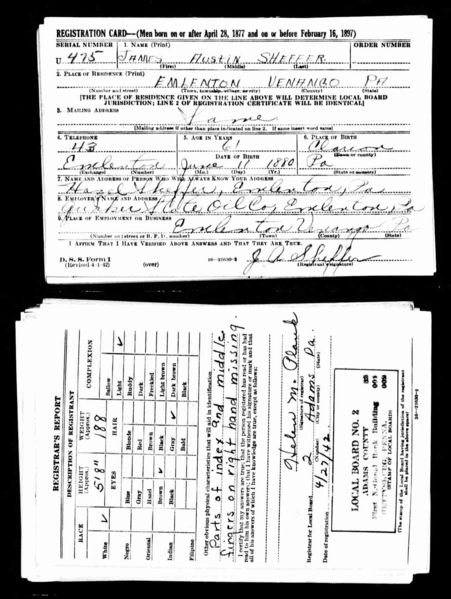 REGISTRATION CARD—(Men born on or after April 28, 1877 and on or before February 16, 1897)
SERIAL NUMBER 1. NAME (Print) ORDER NUMBER
U 475 JAMES AUSTIN SHEFFER
(First) (Middle) (Last)
2. PLACE OF RESIDENCE (Print)
EMLENTON VENANGO PA
(Number and street) (Town, township, village, or city) (County) (State)
[THE PLACE OF RESIDENCE GIVEN ON THE LINE ABOVE WILL DETERMINE LOCAL BOARD
JURISDICTION; LINE 2 OF REGISTRATION CERTIFICATE WILL BE IDENTICAL]
3. MAILING ADDRESS
Same
[Mailing address if other than place indicated on line 2. If same insert word same]
4. TELEPHONE 5. AGE IN YEARS 6. PLACE OF BIRTH
43 61 Clarion
DATE OF BIRTH (Town or county)
Emlenton June 11 1880 Pa
(Exchange) (Number) (Mo.) (Day) (Yr.) (State or country)
7. NAME AND ADDRESS OF PERSON WHO WILL ALWAYS KNOW YOUR ADDRESS
Hazel Sheffer, Emlenton, Pa
8. EMPLOYER'S NAME AND ADDRESS
Quaker State Oil Co, Emlenton, Pa
9. PLACE OF EMPLOYMENT OR BUSINESS
Emlenton Venango Pa
(Number and street or R. F. D. number) (Town) (County) (State)
I AFFIRM THAT I HAVE VERIFIED ABOVE ANSWERS AND THAT THEY ARE TRUE.
D. S. S. Form 1
(Revised 4-1-42) (over) 16—21630-2 J. A. Sheffer
(Registrant's signature)
REGISTRAR'S REPORT
DESCRIPTION OF REGISTRANT
RACE HEIGHT (Approx.) WEIGHT (Approx.) COMPLEXION
5'8" 188
White ✓ EYES HAIR Sallow
Light ✓
Negro Blue Blonde Ruddy
Gray Red Dark
Oriental Hazel Brown Freckled
Brown ✓ Black Light brown
Indian Black Gray ✓ Dark brown
Filipino Bald Black
Other obvious physical characteristics that will aid in identification
Parts of index and middle
fingers on right hand missing.
I certify that my answers are true; that the person registered has read or has had
read to him his own answers; that I have witnessed his signature or mark and that
all of his answers of which I have knowledge are true, except as follows:
Helen M. Plank
(Signature of registrar)
Registrar for Local Board 2 Adams Pa.
(Number) (City or county) (State)
Date of registration 4/27/42
LOCAL BOARD NO. 2
ADAMS COUNTY
First National Bank Building
GETTYSBURG, PENNA.
(STAMP OF LOCAL BOARD)
(The stamp of the Local Board having jurisdiction of the registrant
shall be placed in the above space.)
16—21630-1